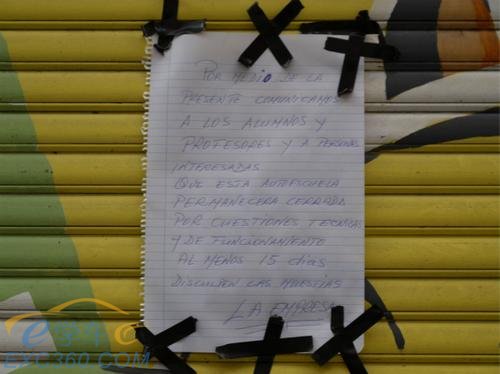 POR MEDIO DE LA
PRESENTE COMUNICAMOS
A LOS ALUMNOS Y
PROFESORES Y A PERSONAS
INTERESADAS
QUE ESTA AUTOESCUELA
PERMANECERA CERRADA
POR CUESTIONES TECNICAS
Y DE FUNCIONAMIENTO
AL MENOS 15 dias
DISCULPEN LAS MOLESTIAS
LA EMPRESA
EZC360.COM